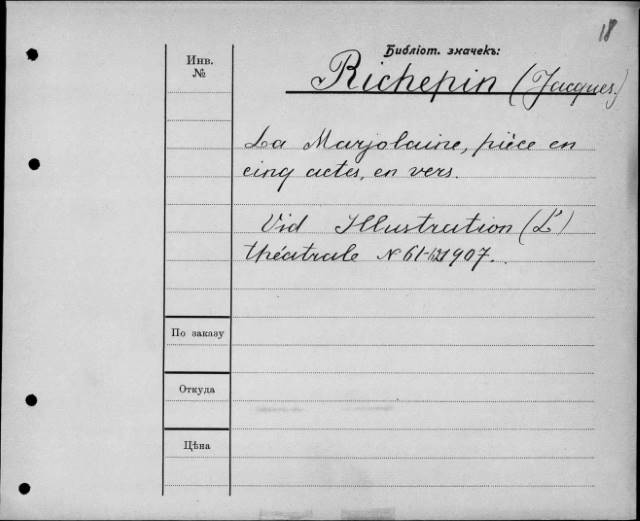 18
Библіот. значекъ:
Инв.
№
Richepin (Jacques.)
La Marjolaine, pièce en
cinq actes, en vers.
Vid Illustration (L')
théatrale N 61- 1907.
По заказу
Откуда
Цѣна